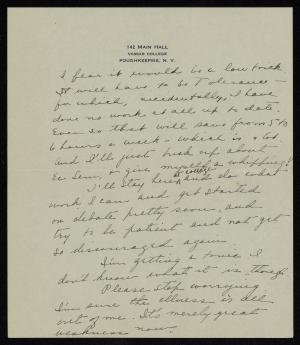 142 MAIN HALL
VASSAR COLLEGE
POUGHKEEPSIE, N. Y.
I fear it would be a low trick
It will have to be Tolerance —
for which, accidentally, I have
done no work at all up to date.
Even so that will save from 5 to
6 hours a week - which is a lot
and I'll just buck up about
Ec Sem, & give myself a whipping!
I'll stay here at college and do what
work I can and get started
on debate pretty soon, and
try to be patient and not get
so discouraged again.
I'm getting a tonic. I
don't know what it is, though.
Please stop worrying
I'm sure the illness is all
out of me. It's merely great
weakness now.